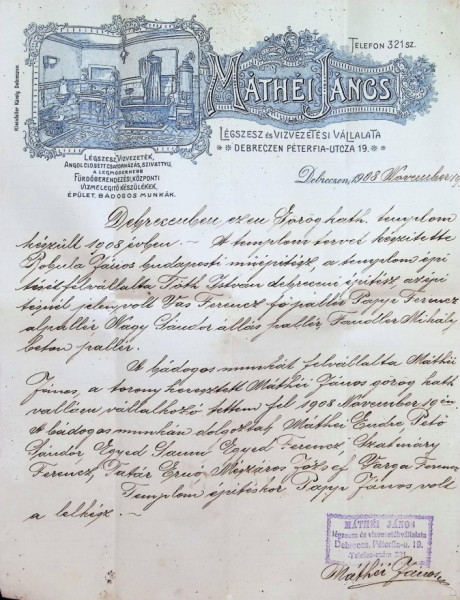 TELEFON 321 SZ.
MÁTHÉI JÁNOS
LÉGSZESZ ÉS VIZVEZETÉSI VÁLLALATA
DEBRECZEN PÉTERFIA-UTCZA 19.
LÉGSZESZ, VIZVEZETÉK,
ANGOL CLOSETT CSATORNÁZÁS, SZIVATTYU,
A LEGMODERNEBB
FÜRDŐBERENDEZÉSI, KÖZPONTI
VIZMELEGITŐ KÉSZÜLÉKEK,
ÉPÜLET, BÁDOGOS MUNKÁK.
Debreczen, 1908 November
Debreczenben ezen Görög kath. templom
készült 1908 évben. - A templom tervet készitette
Bobula János budapesti műépitész, a templom épi
tését felvállalta Tóth István debreceni épitész, az épi
tésnél jelen volt Vas Ferencz főpallér Papp Ferencz
alpallér Nagy Sándor állás pallér Fandler Mihály
beton pallér.
A bádogos munkát felvállalta Máthéi
János, a torony keresztett Máthéi János görög kath
vallásu vállalkozó tettem fel 1908 November 19 én
A bádogos munkán dolgoztak Máthéi Endre, Pető
Sándor, Egyed Egyed Ferencz, Szatmáry
Ferencz, Tatár Ernő Mészáros József Varga Ferencz
Templom épitéskor Papp János volt
a lelkész. -
MÁTHÉI JÁNOS
légszesz és vizvezetékvállalata
Debreczen, Péterfia-u. 19.
Telefon-szám 321
Máthéi János